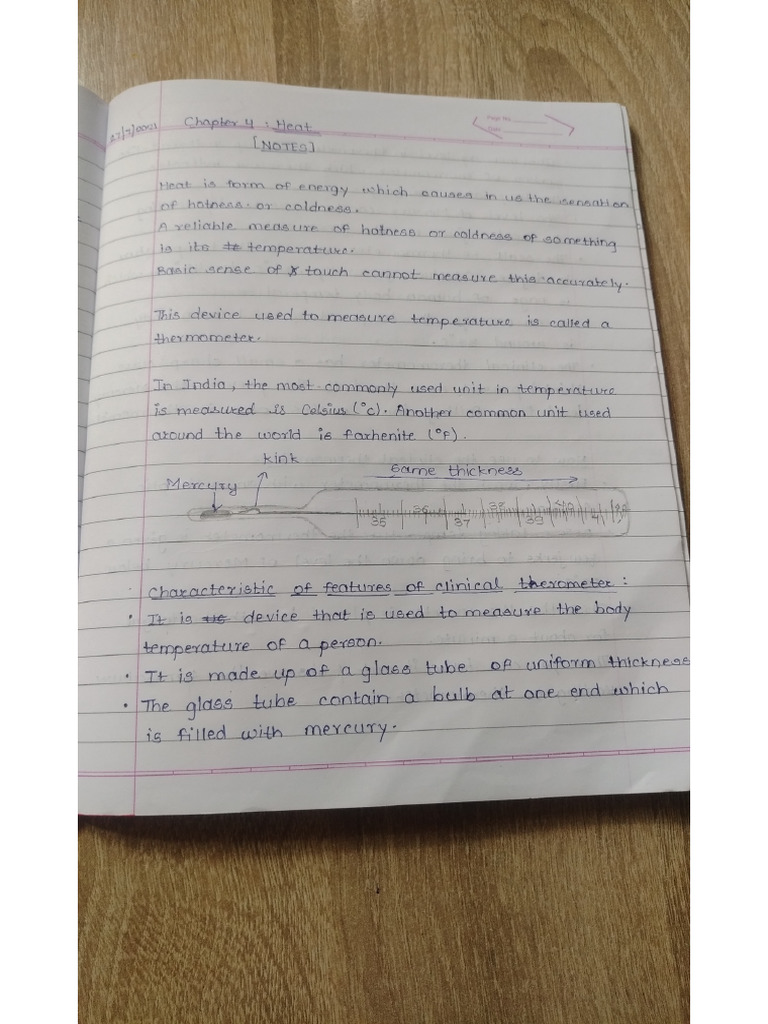 Chapter 4 : Heat
[NOTES]
Page No.
Date
Heat is form of energy which causes in us the sensation
of hotness or coldness.
A reliable measure of hotness or coldness of something
is its temperature.
Basic sense of touch cannot measure this accurately.
This device used to measure temperature is called a
thermometer.
In India, the most commonly used unit in temperature
is measured is Celsius (°C). Another common unit used
around the world is farhenite (°F).
kink
Same thickness
Mercury
35 36 37 38 39 40 41
Characteristic of features of clinical therometer :
• It is device that is used to measure the body
temperature of a person.
• It is made up of a glass tube of uniform thickness
• The glass tube contain a bulb at one end which
is filled with mercury.